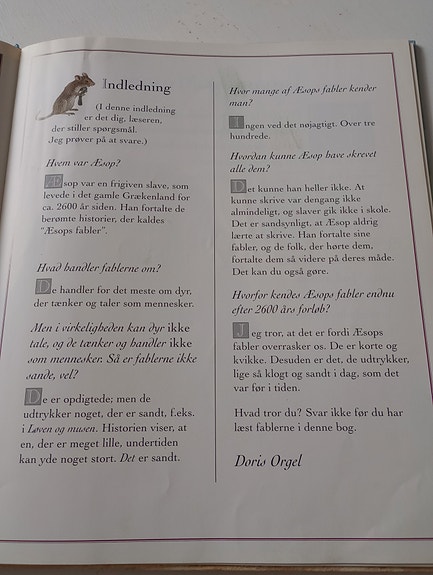 Indledning
(I denne indledning
er det dig, læseren,
der stiller spørgsmål.
Jeg prøver på at svare.)
Hvem var Æsop?
Æsop var en frigiven slave, som
levede i det gamle Grækenland for
ca. 2600 år siden. Han fortalte de
berømte historier, der kaldes
“Æsops fabler”.
Hvad handler fablerne om?
De handler for det meste om dyr,
der tænker og taler som mennesker.
Men i virkeligheden kan dyr ikke
tale, og de tænker og handler ikke
som mennesker. Så er fablerne ikke
sande, vel?
De er opdigtede; men de
udtrykker noget, der er sandt, f.eks.
i Løven og musen. Historien viser, at
en, der er meget lille, undertiden
kan yde noget stort. Det er sandt.
Hvor mange af Æsops fabler kender
man?
Ingen ved det nøjagtigt. Over tre
hundrede.
Hvordan kunne Æsop have skrevet
alle dem?
Det kunne han heller ikke. At
kunne skrive var dengang ikke
almindeligt, og slaver gik ikke i skole.
Det er sandsynligt, at Æsop aldrig
lærte at skrive. Han fortalte sine
fabler, og de folk, der hørte dem,
fortalte dem så videre på deres måde.
Det kan du også gøre.
Hvorfor kendes Æsops fabler endnu
efter 2600 års forløb?
Jeg tror, at det er fordi Æsops
fabler overrasker os. De er korte og
kvikke. Desuden er det, de udtrykker,
lige så klogt og sandt i dag, som det
var før i tiden.
Hvad tror du? Svar ikke før du har
læst fablerne i denne bog.
Doris Orgel